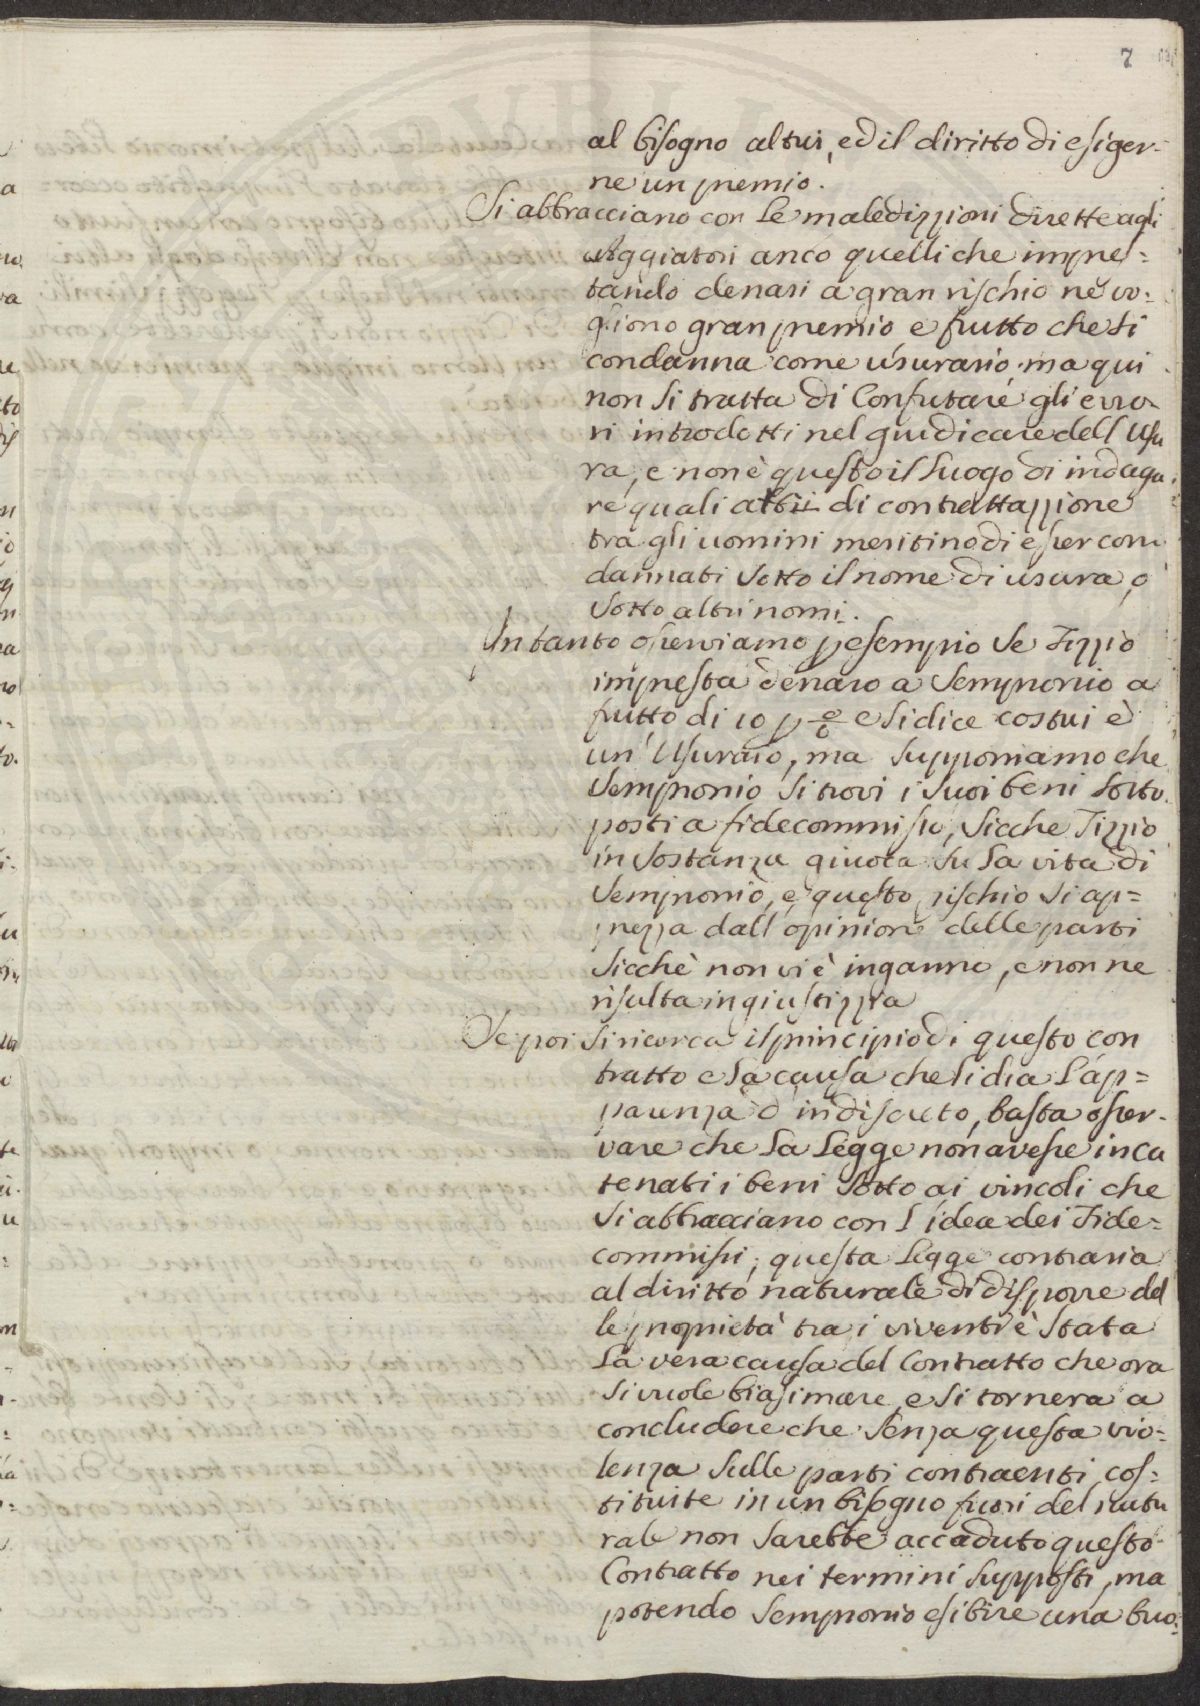 7
al bisogno altrui, ed il diritto di esiger=
ne un premio.
Si abbracciano con le maledizzioni dirette agli
Aggiatori anco quelli che impres=
tando denari a gran rischio ne vo=
gliono gran premio e frutto che si
condanna come usurario, ma qui
non si tratta di Confutare gli erro=
ri introdotti nel giudicare dell Usu
ra, e non è questo il luogo di indaga=
re quali atti di contrattazzione
tra gli uomini meritino di esser con
dannati sotto il nome di usura, o
sotto altri nomi.
Intanto osserviamo p esempio se Tizzio
impresta denaro a Sempronio a
frutto di 10 p % e si dice costui è
un' Usuraio, ma supponiamo che
Sempronio si trovi i suoi beni sotto
posti a fidecommisso, sicche Tizzio
in sostanza giuoca su la vita di
Sempronio, e questo rischio si ap=
prezza dall' opinione delle parti
sicchè non vi è inganno, e non ne
risulta ingiustizzia
Se poi si ricerca il principio di questo con
tratto e la causa che li dia l'ap=
parenza d' indiscreto, basta osser=
vare che la legge non avesse inca
tenati i beni sotto ai vincoli che
si abbracciano con l'idea dei Fide=
commissi; questa legge contraria
al diritto naturale di disporre del
le proprietà tra i viventi è stata
la vera causa del Contratto che ora
si vuole biasimare, e si tornera a
concludere che senza questa vio=
lenza sulle parti contraenti, cos=
tituite in un bisogno fuori del natu
rale non sarebbe accaduto questo
Contratto nei termini supposti, ma
potendo Sempronio esibire una buo=